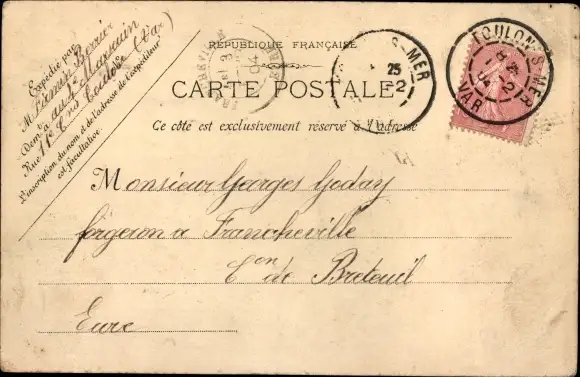 Expédié par
M. Firmin Perrier
Dem<sup>t</sup> à
Rue
Toulon (Var)
L'inscription du nom et de l'adresse de l'expéditeur
est facultative.
RÉPUBLIQUE FRANÇAISE
CARTE POSTALE
Ce côté est exclusivement réservé à l'adresse
S-MER
25
-2
TOULON-S-MER
-2
04
VAR
04
Monsieur Georges Goday
forgeron a Francheville
C.on de Breteuil
Eure